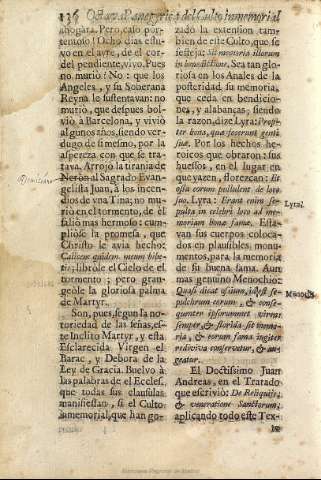 136 Octava Panegyrica del Culto inmemorial
ahogara. Pero, caso por-
tentoso! Ocho dias estu-
vo en el ayre, de el cor-
del pendiente, vivo. Pues
no murio? No: que los
Angeles, y su Soberana
Reyna le sustentavan: no
murio, que despues bol-
viò à Barcelona, y viviò
algunos años, siendo ver-
dugo de sì mesmo, por la
aspereza con que se tra-
tava. Arrojò la tirania de
Neròn al Sagrado Evan-
gelista Juan, à los incen-
dios de vna Tina; no mu-
riò en el tormento, de èl
saliò mas hermoso: cum-
pliòse la promesa, que
Christo le avia hecho:
Calicem quidem meum bibe-
tis; librole el Cielo de el
tormento; pero gran-
geòle la gloriosa palma
de Martyr.
Son, pues, segun la no-
toriedad de las señas, es-
te Inclito Martyr, y esta
Esclarecida Virgen el
Barac, y Debora de la
Ley de Gracia. Buelvo à
las palabras de el Eccles.
que todas sus clausulas
manifiestan, si el Culto
inmemorial, que han go-
zado la extension tam-
bien de este Culto, que se
iesteja: Ut memoria illorum
in benedictione. Sea tan glo-
riosa en los Anales de la
posteridad su memoria,
que ceda en bendicio-
nes, y alabanças; siendo
la razon, dize Lyra: Prop-
ter bona, quæ fecerunt genti
suæ. Por los hechos he-
roicos que obraron: sus
huesos, en el lugar en
que yazen, florezcan: Et
ossa eorum pullulent de loco
suo. Lyra: Erant enim se-
pulta in celebri loco ad me-
moriam bonæ famæ. Esta-
van sus cuerpos coloca-
dos en plausibles monu-
mentos, para la memoria
de su buena fama. Aun
mas genuino Menochio:
Quasi dicat ossium, idest se-
pulchrum eorum, & conse-
quenter ipsorummet virens
semper, & florida sit memo-
ria, & eorum fama jugiter
rediviva conservetur, & au-
geatur.
El Doctissimo Juan
Andreas, en el Tratado
que escriviò: De Reliquijs,
& veneratione Sanctorum;
aplicando todo este Tex-
to
Lyra.
Menoch.
Biblioteca Regional de Madrid